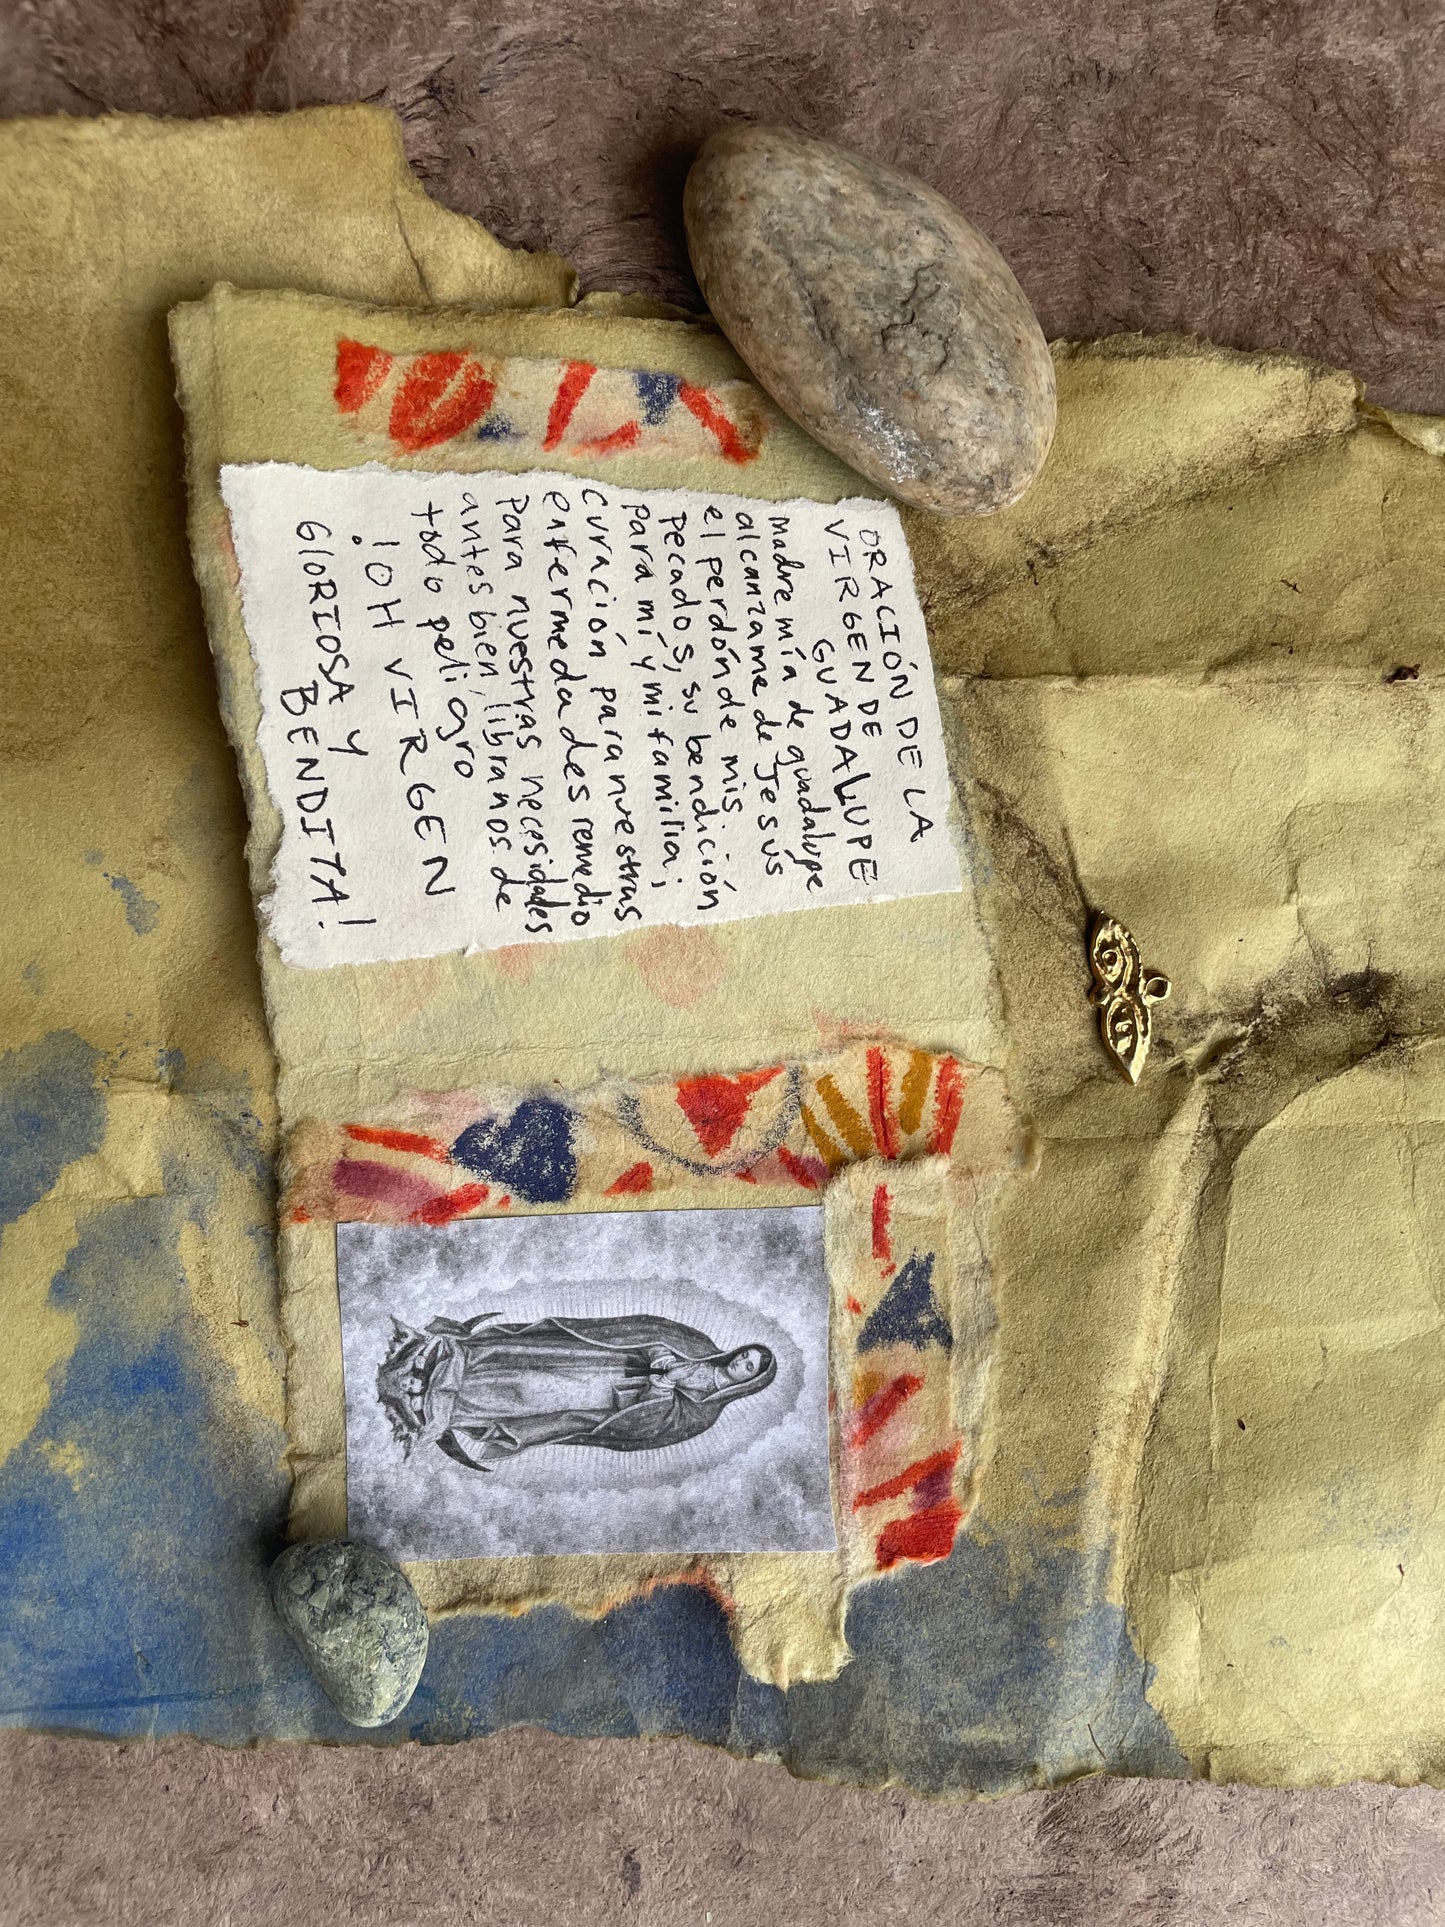 ORACIÓN DE LA
VIRGEN DE
GUADALUPE
madre mía de guadalupe
alcanzame de Jesús
el perdón de mis
pecados, su bendición
para mí y mi familia;
curación para nuestras
enfermedades remedio
para nuestras necesidades
antes bien, libranos de
todo peligro
¡OH VIRGEN
GlORIOSA Y
BENDITA!